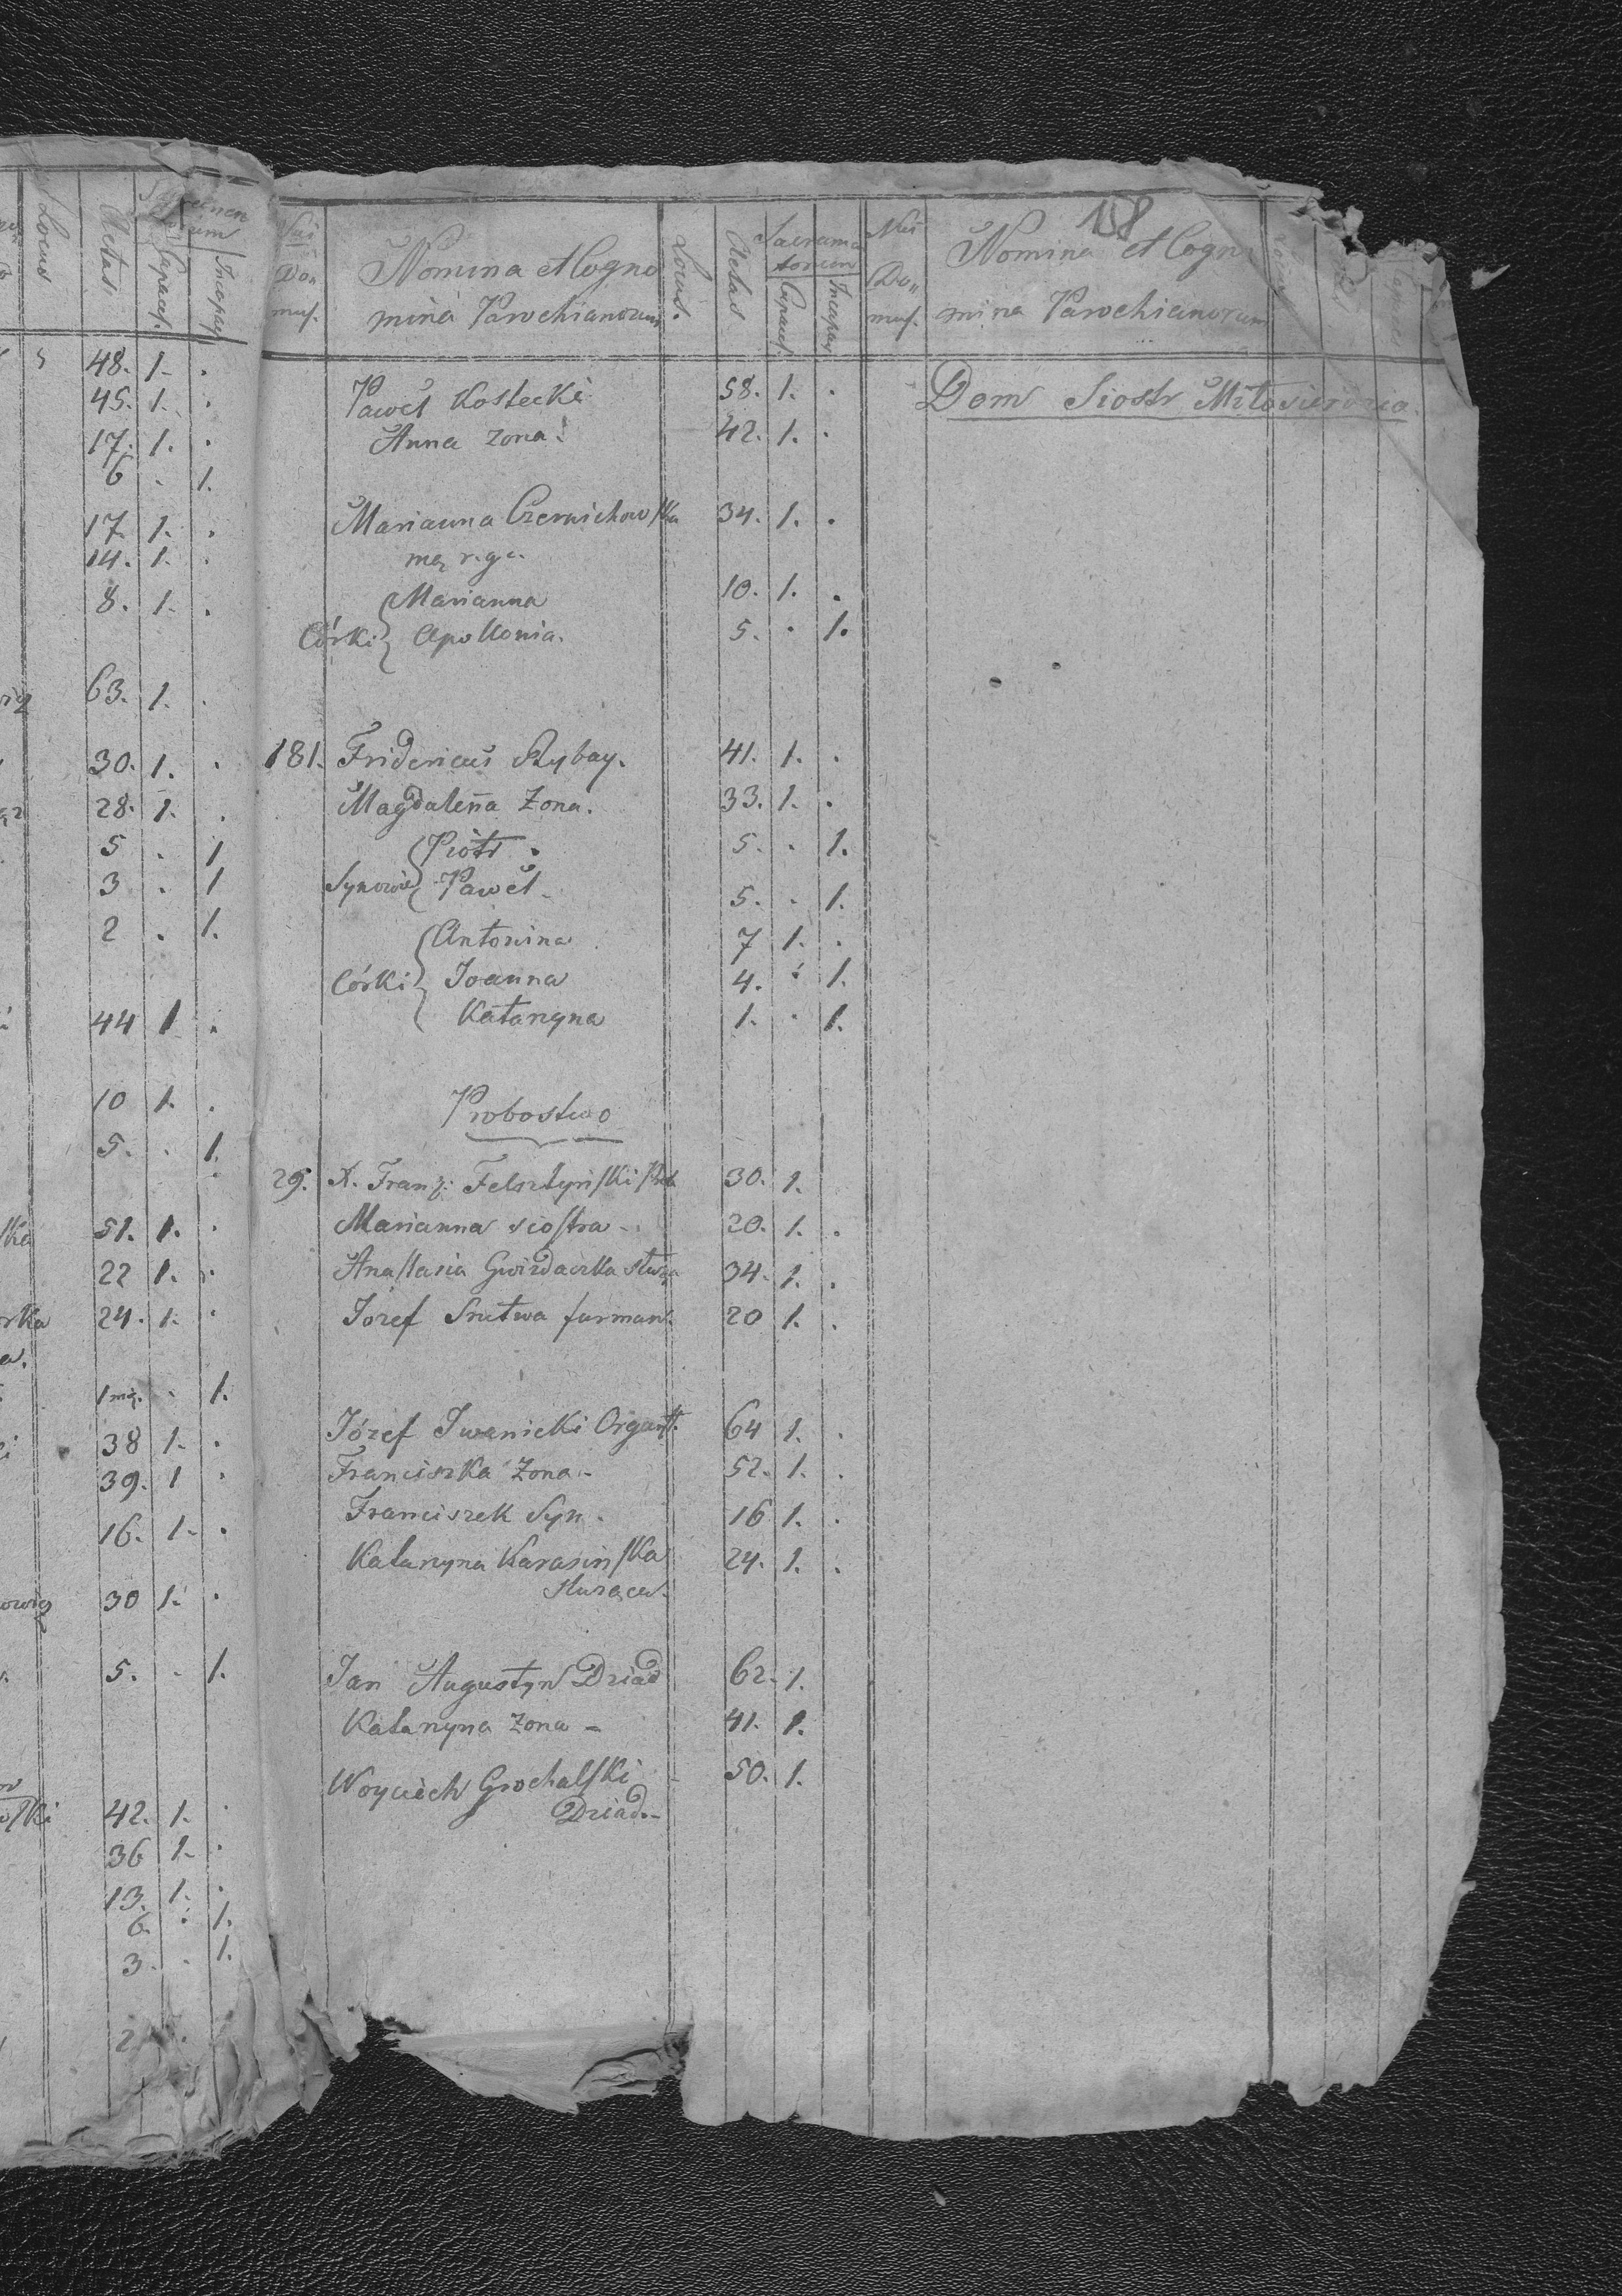 Locus
Aetas
Capaces.
Incapac.
48. 1. .
45. 1. .
17. 1. .
6 . 1.
17. 1. .
14. 1. .
8. 1. .
63. 1. .
30. 1. .
28. 1. .
5 . 1
3 . 1
2 . 1.
44 1 .
10 1. .
5. . 1.
51. 1. .
22 1. .
24. 1. .
1 . 1.
38 1. .
39. 1 .
16. 1. .
30 1. .
5. . 1.
42. 1. .
36 1. .
13. 1. .
6. . 1.
3. . 1.
2
Nui Do„ mus.
Nomina et Cogno
mina Parochianorum
Locus.
Aetas
Sacramen
torum
Capaces.
Incapac
Paweł Kostecki 58. 1. .
Anna zona. 42. 1. .
Marianna Czernichowska 34. 1. .
Marianna 10. 1. .
Córki Apollonia. 5. . 1.
181. Fridericus Rybay. 41. 1. .
Magdalena zona. 33. 1. .
Piotr . 5. . 1.
Synowie Paweł 5. . 1.
Antonina 7 1. .
Córki Joanna 4. . 1.
Katarzyna 1. . 1.
Probostwo
29. X. Franz: Felsztyński 30. 1.
Marianna siostra 20. 1. .
Anastasia 34. 1. .
Józef Smetwa furman. 20 1. .
Józef Iwanicki Organist. 64 1. .
Franciszka zona 52. 1. .
Franciszek Syn. 16 1. .
Katarzyna Karasińska 24. 1. .
służąca.
Jan Augustyn Dziad 62. 1.
Katarzyna zona 41. 1.
Woyciech Grochalski 50. 1.
Dziad.
158
Nui Do„ mus.
Nomina et Cogn
mina Parochianorum
Dom Siostr Miłosierdzia.